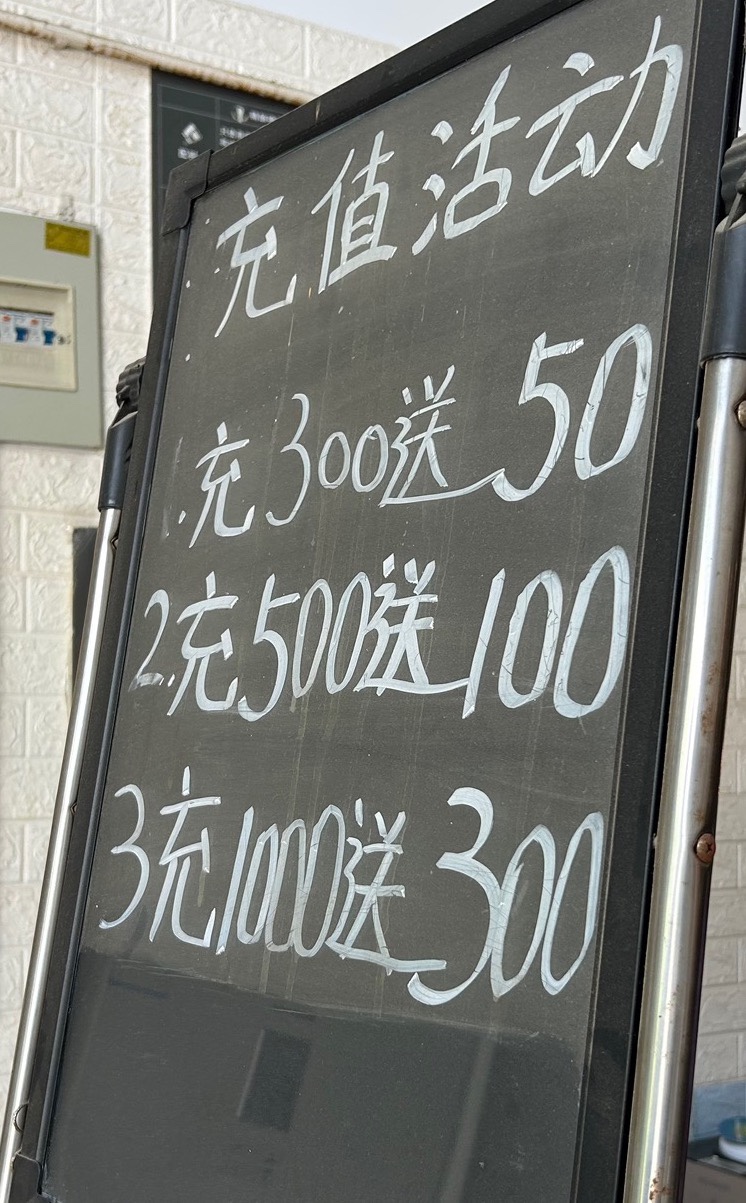 充值活动
1.充300送50
2.充500送100
3充1000送300